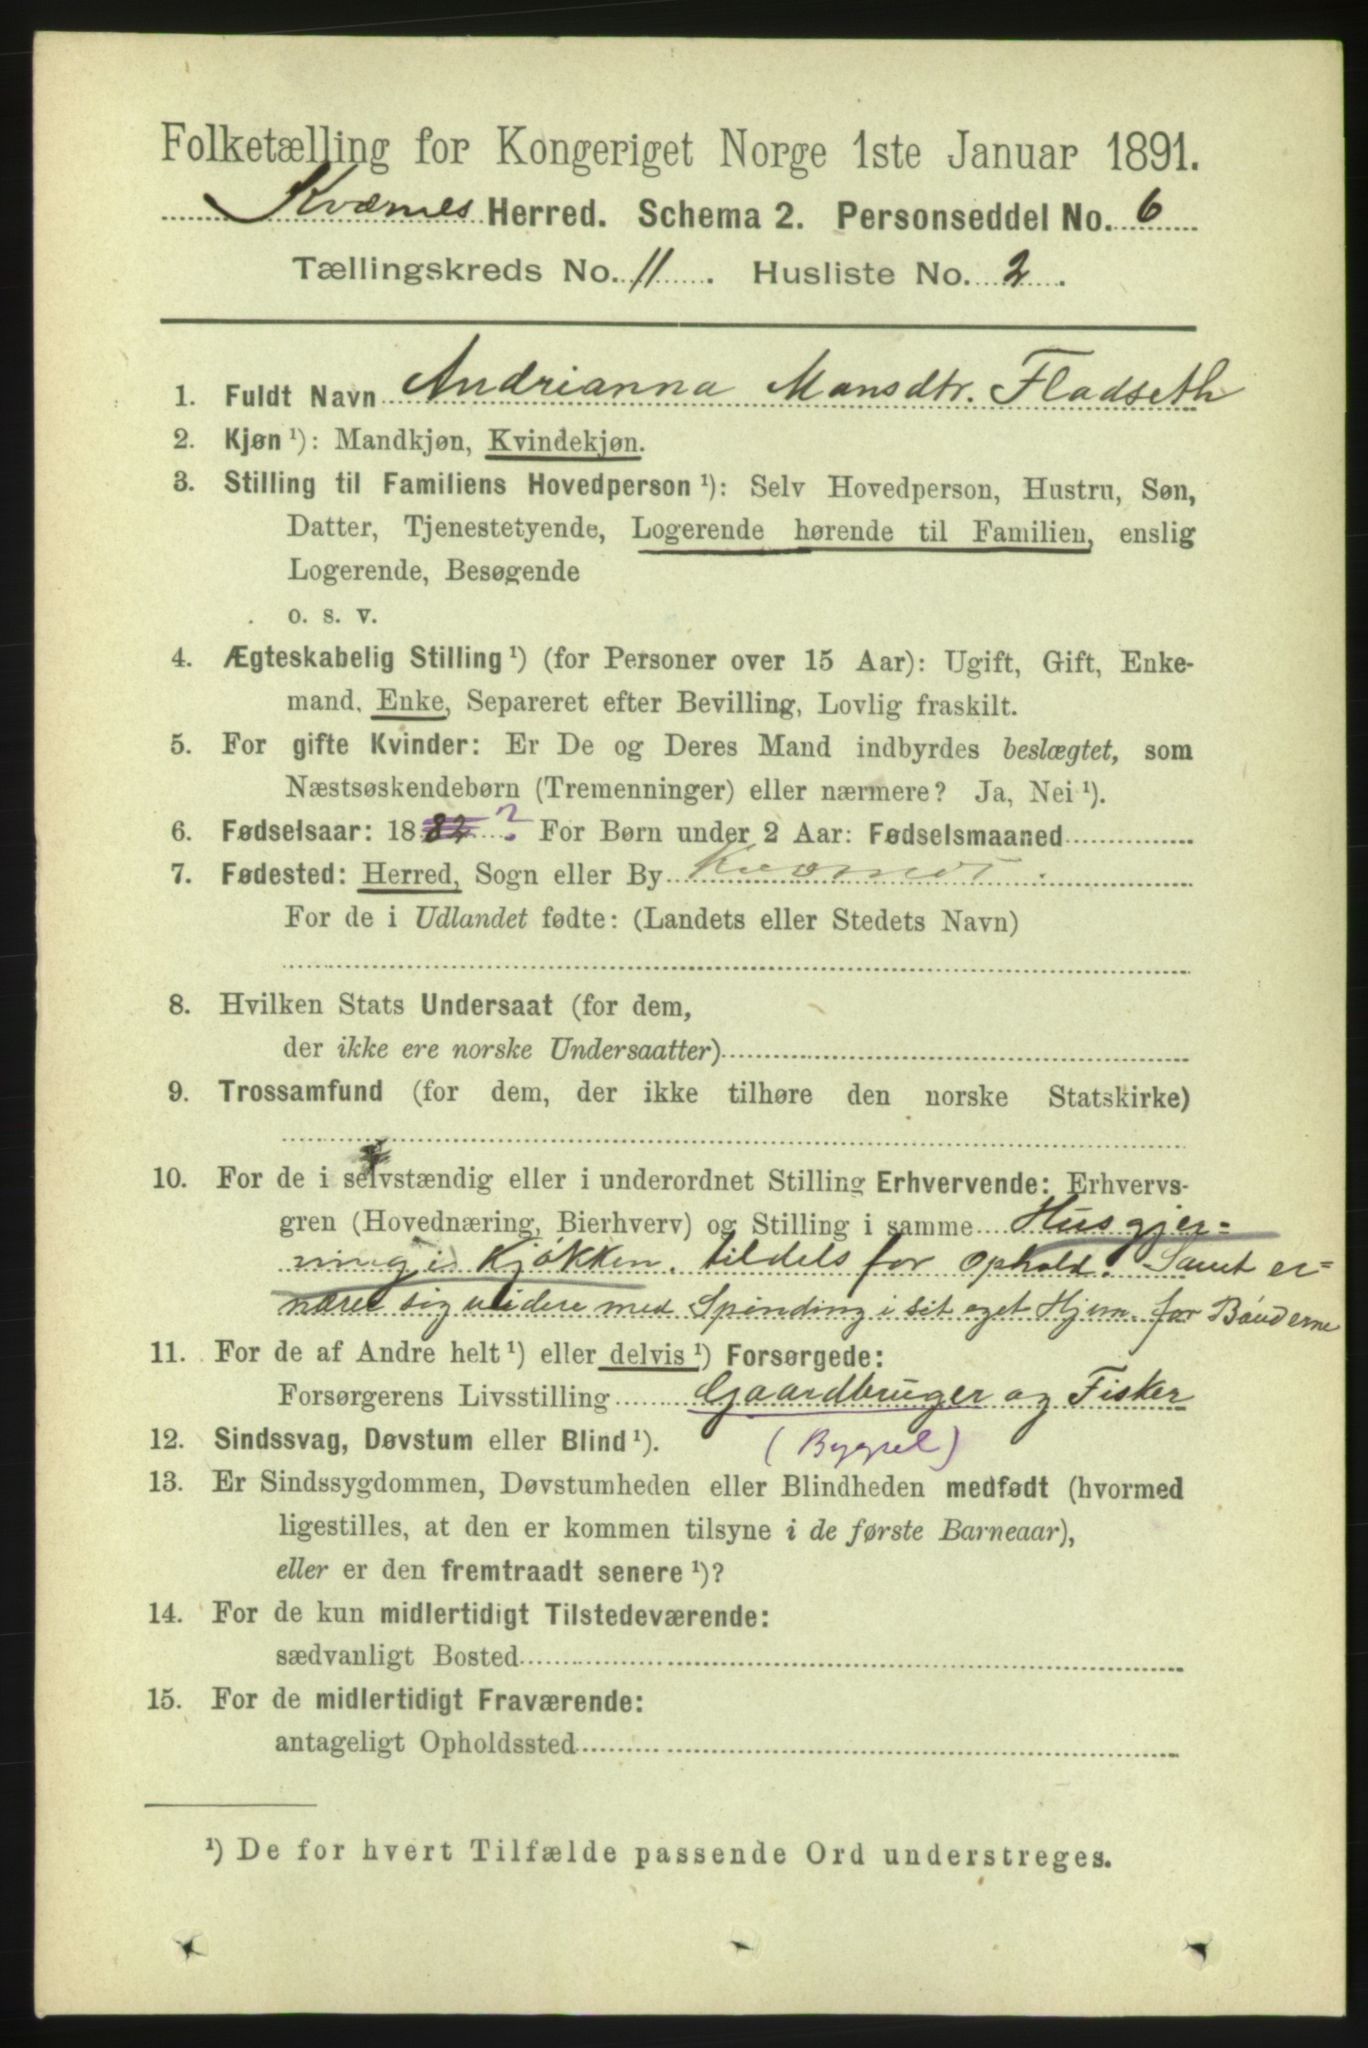 Folketælling for Kongeriget Norge 1ste Januar 1891.
Kværnes Herred. Schema 2. Personseddel No. 6
Tællingskreds No. 11. Husliste No. 2.
1. Fuldt Navn Andrianna Monsdtr. Fladseth
2. Kjøn ¹): Mandkjøn, Kvindekjøn.
3. Stilling til Familiens Hovedperson ¹): Selv Hovedperson, Hustru, Søn,
Datter, Tjenestetyende, Logerende hørende til Familien, enslig
Logerende, Besøgende
o. s. v.
4. Ægteskabelig Stilling ¹) (for Personer over 15 Aar): Ugift, Gift, Enke-
mand, Enke, Separeret efter Bevilling, Lovlig fraskilt.
5. For gifte Kvinder: Er De og Deres Mand indbyrdes beslægtet, som
Næstsøskendebørn (Tremenninger) eller nærmere? Ja, Nei ¹).
6. Fødselsaar: 1882 ? For Børn under 2 Aar: Fødselsmaaned
7. Fødested: Herred, Sogn eller By Kværnes
For de i Udlandet fødte: (Landets eller Stedets Navn)
8. Hvilken Stats Undersaat (for dem,
der ikke ere norske Undersaatter)
9. Trossamfund (for dem, der ikke tilhøre den norske Statskirke)
10. For de i selvstændig eller i underordnet Stilling Erhvervende: Erhvervs-
gren (Hovednæring, Bierhverv) og Stilling i samme Husgjer=
ning i Kjøkken. tildels for ophold. Samt er=
nærer sig videre med Spinding i sit eget Hjem. for Bønderne
11. For de af Andre helt ¹) eller delvis ¹) Forsørgede:
Forsørgerens Livsstilling Gaardbruger og Fisker
12. Sindssvag, Døvstum eller Blind ¹). (Bygsel)
13. Er Sindssygdommen, Døvstumheden eller Blindheden medfødt (hvormed
ligestilles, at den er kommen tilsyne i de første Barneaar),
eller er den fremtraadt senere ¹)?
14. For de kun midlertidigt Tilstedeværende:
sædvanligt Bosted
15. For de midlertidigt Fraværende:
antageligt Opholdssted
¹) De for hvert Tilfælde passende Ord understreges.